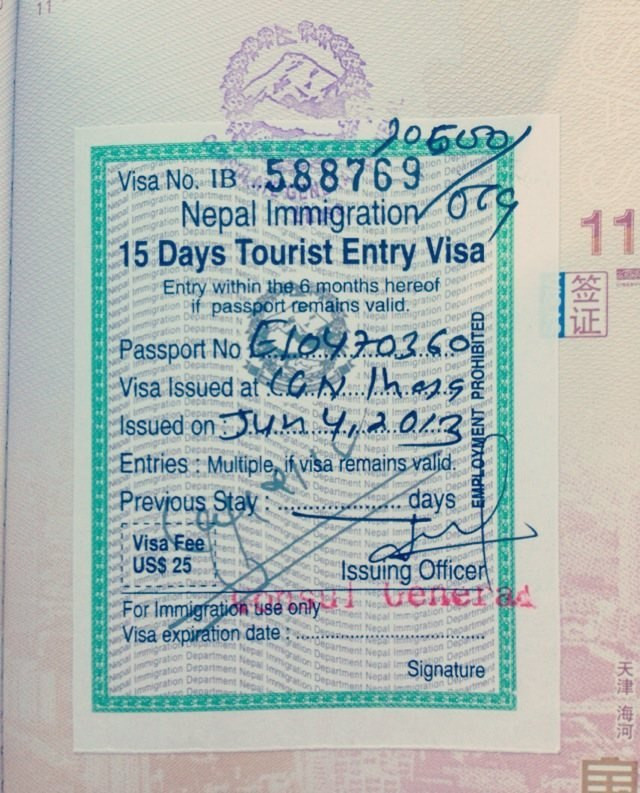 11
Visa No. IB 588769
Nepal Immigration
15 Days Tourist Entry Visa
Entry within the 6 months hereof
if passport remains valid.
Passport No E10470360
Visa Issued at CGN lhasa
Issued on : Jun 4, 2013
Entries : Multiple, if visa remains valid.
Previous Stay : days
EMPLOYMENT PROHIBITED
Visa Fee
US$ 25
Issuing Officer
Consul General
For Immigration use only
Visa expiration date :
Signature
11
签证
天津 海河